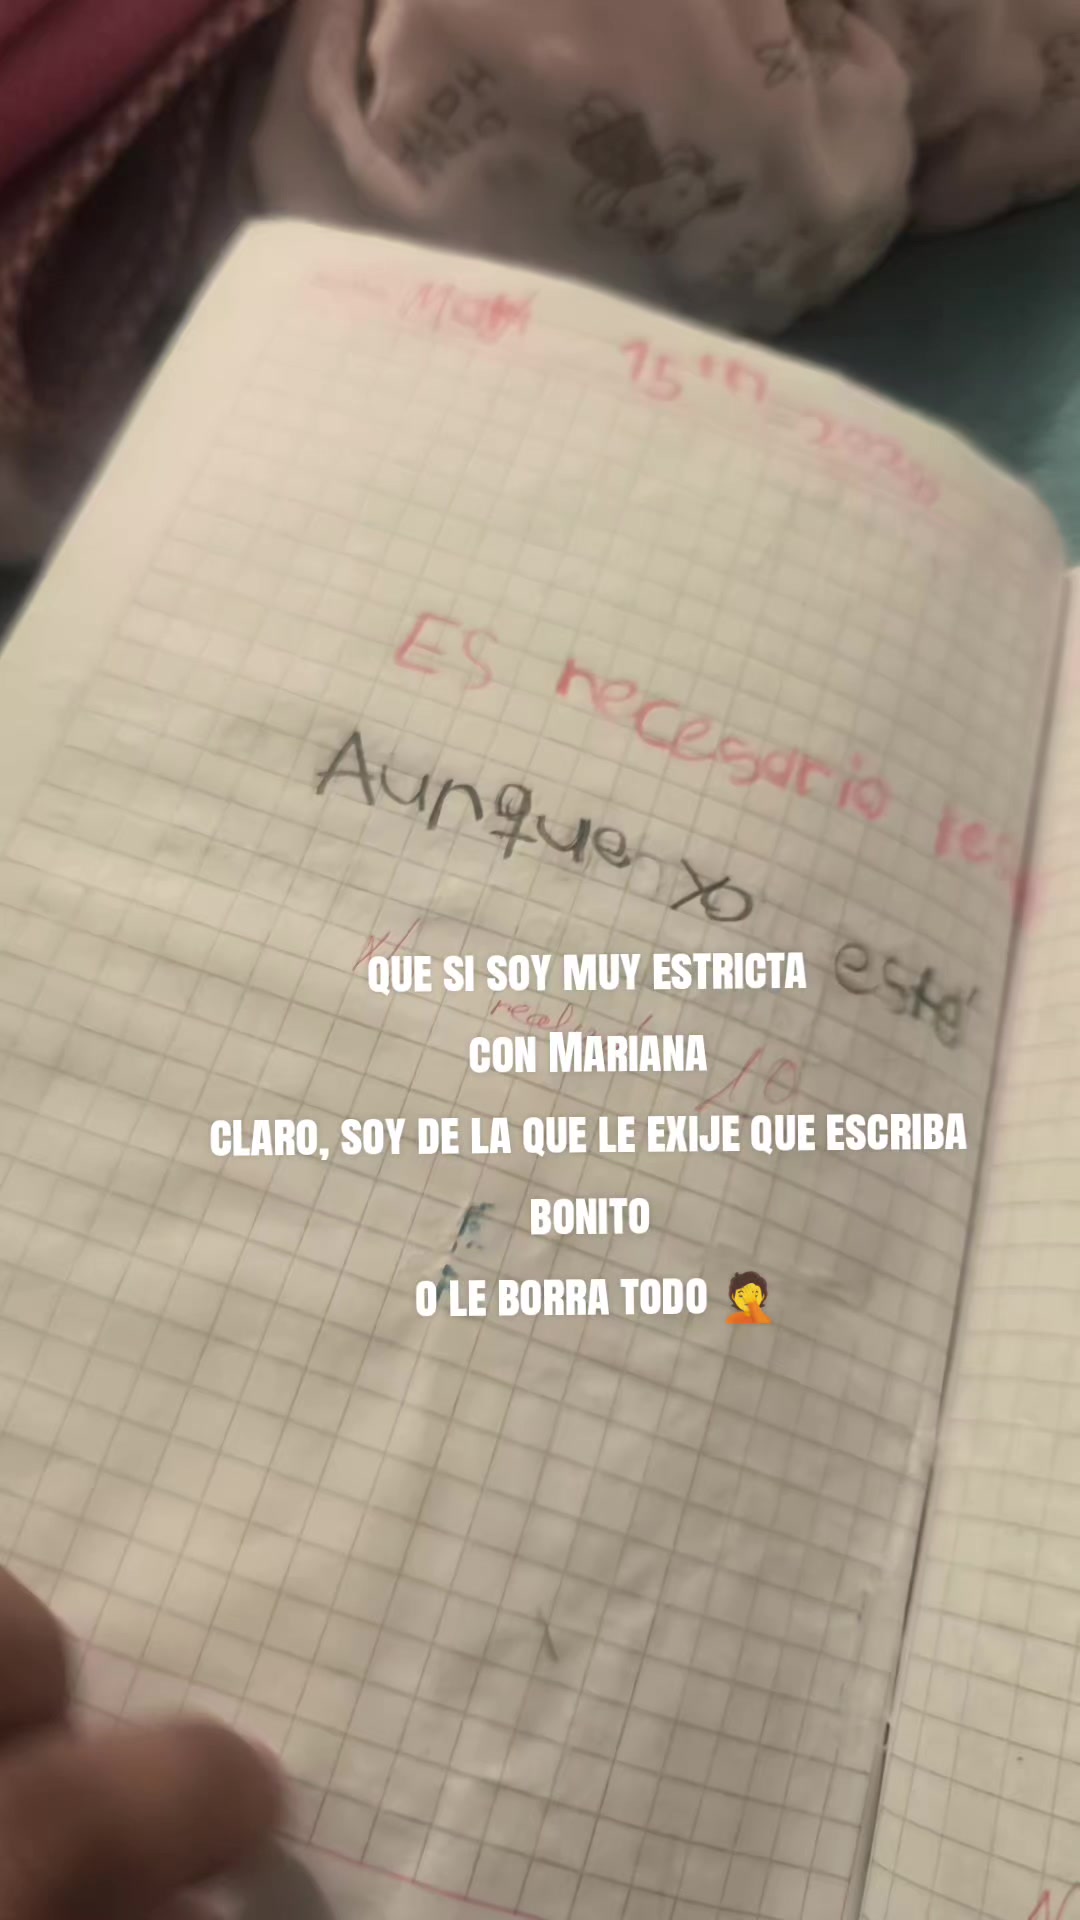 15th
Es necesario
Aunque yo esté
10
QUE SI SOY MUY ESTRICTA
CON MARIANA
CLARO, SOY DE LA QUE LE EXIJE QUE ESCRIBA
BONITO
O LE BORRA TODO 🤦